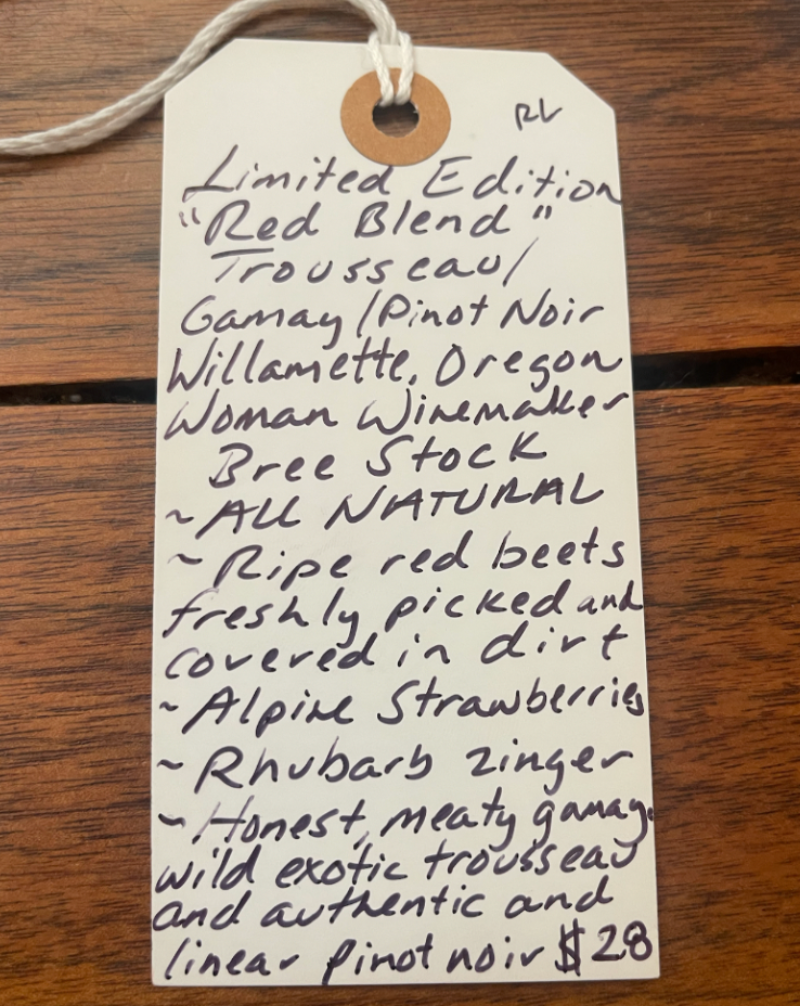 RL
Limited Edition
"Red Blend"
Trousseau/
Gamay/Pinot Noir
Willamette, Oregon
Woman Winemaker
Bree Stock
~ALL NATURAL
~Ripe red beets
freshly picked and
covered in dirt
~Alpine Strawberries
~Rhubarb zinger
~Honest, meaty gamay.
wild exotic trousseau
and authentic and
linear pinot noir $28